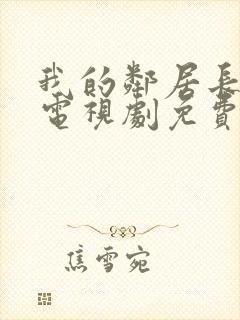 我的鄰居長
電視劇免費
焦雪宛